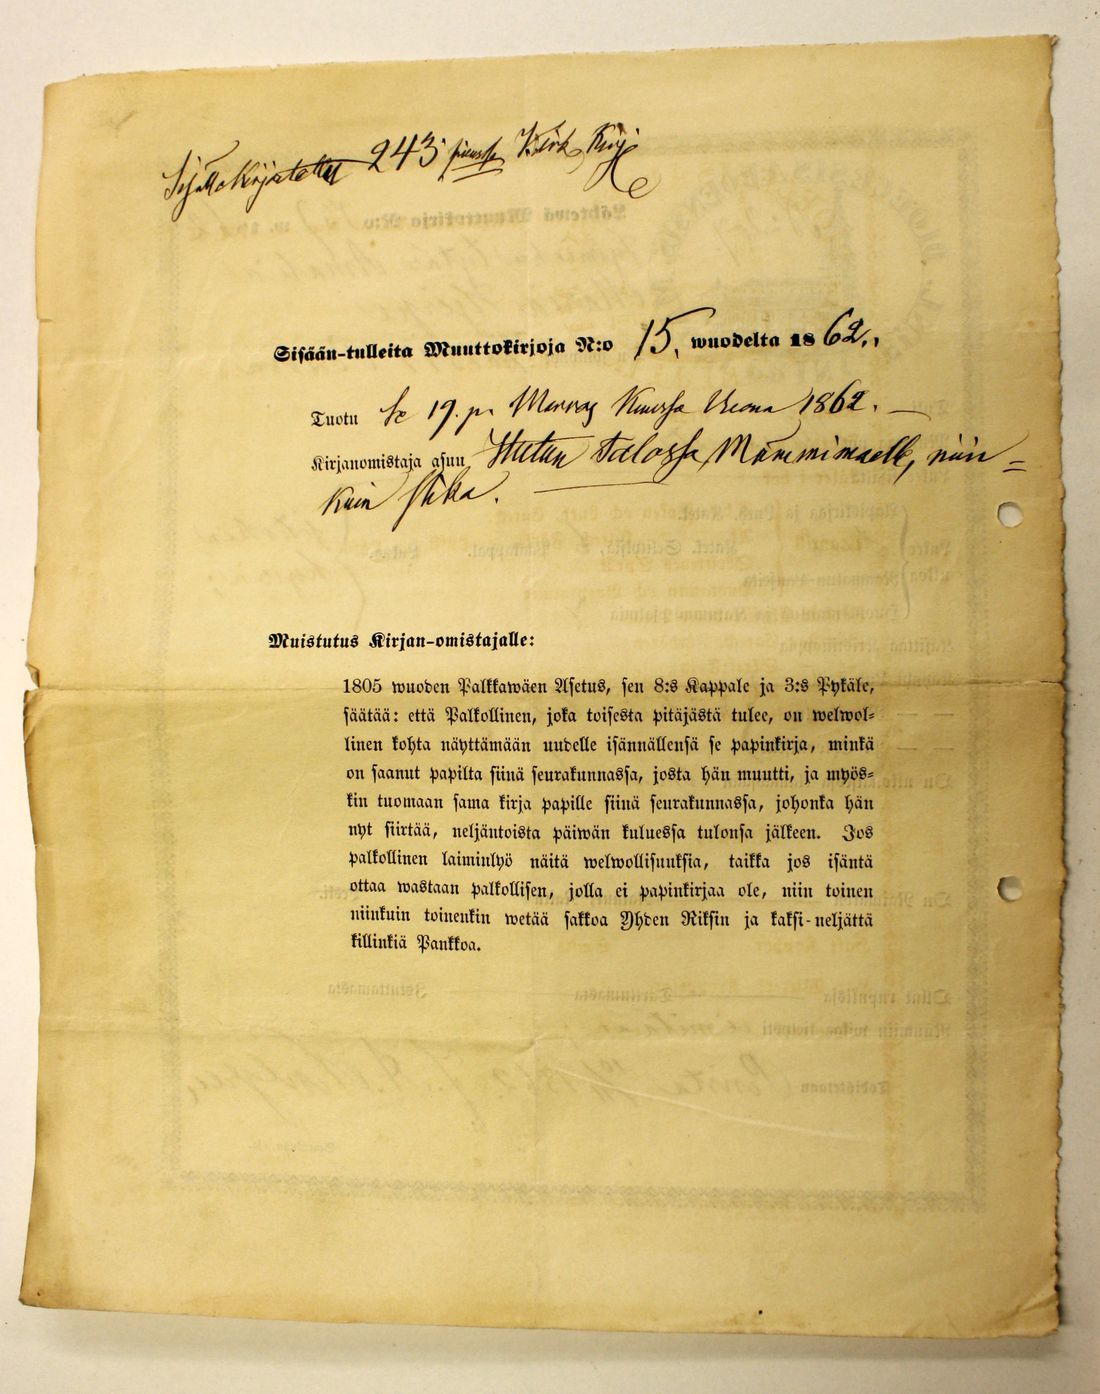 243 Kirk Kirj
Sisään-tulleita Muuttokirjoja N:o 15, wuodelta 1862.
Tuotu se 19. p. Marras Kuussa Vuona 1862. —
Kirjanomistaja asuu Talossa, niin=
kuin
Muistutus Kirjan-omistajalle:
1805 wuoden Palkkawäen Asetus, sen 8:s Kappale ja 3:s Pykäle,
säätää: että Palkollinen, joka toisesta pitäjästä tulee, on welwol=
linen kohta näyttämään uudelle isännällensä se papinkirja, minkä
on saanut papilta siinä seurakunnassa, josta hän muutti, ja myös=
kin tuomaan sama kirja papille siinä seurakunnassa, johonka hän
nyt siirtää, neljäntoista päiwän kuluessa tulonsa jälkeen. Jos
palkollinen laiminlyö näitä welwollisuuksia, taikka jos isäntä
ottaa wastaan palkollisen, jolla ei papinkirjaa ole, niin toinen
niinkuin toinenkin wetää sakkoa Yhden Riksin ja kaksi-neljättä
killinkiä Pankkoa.